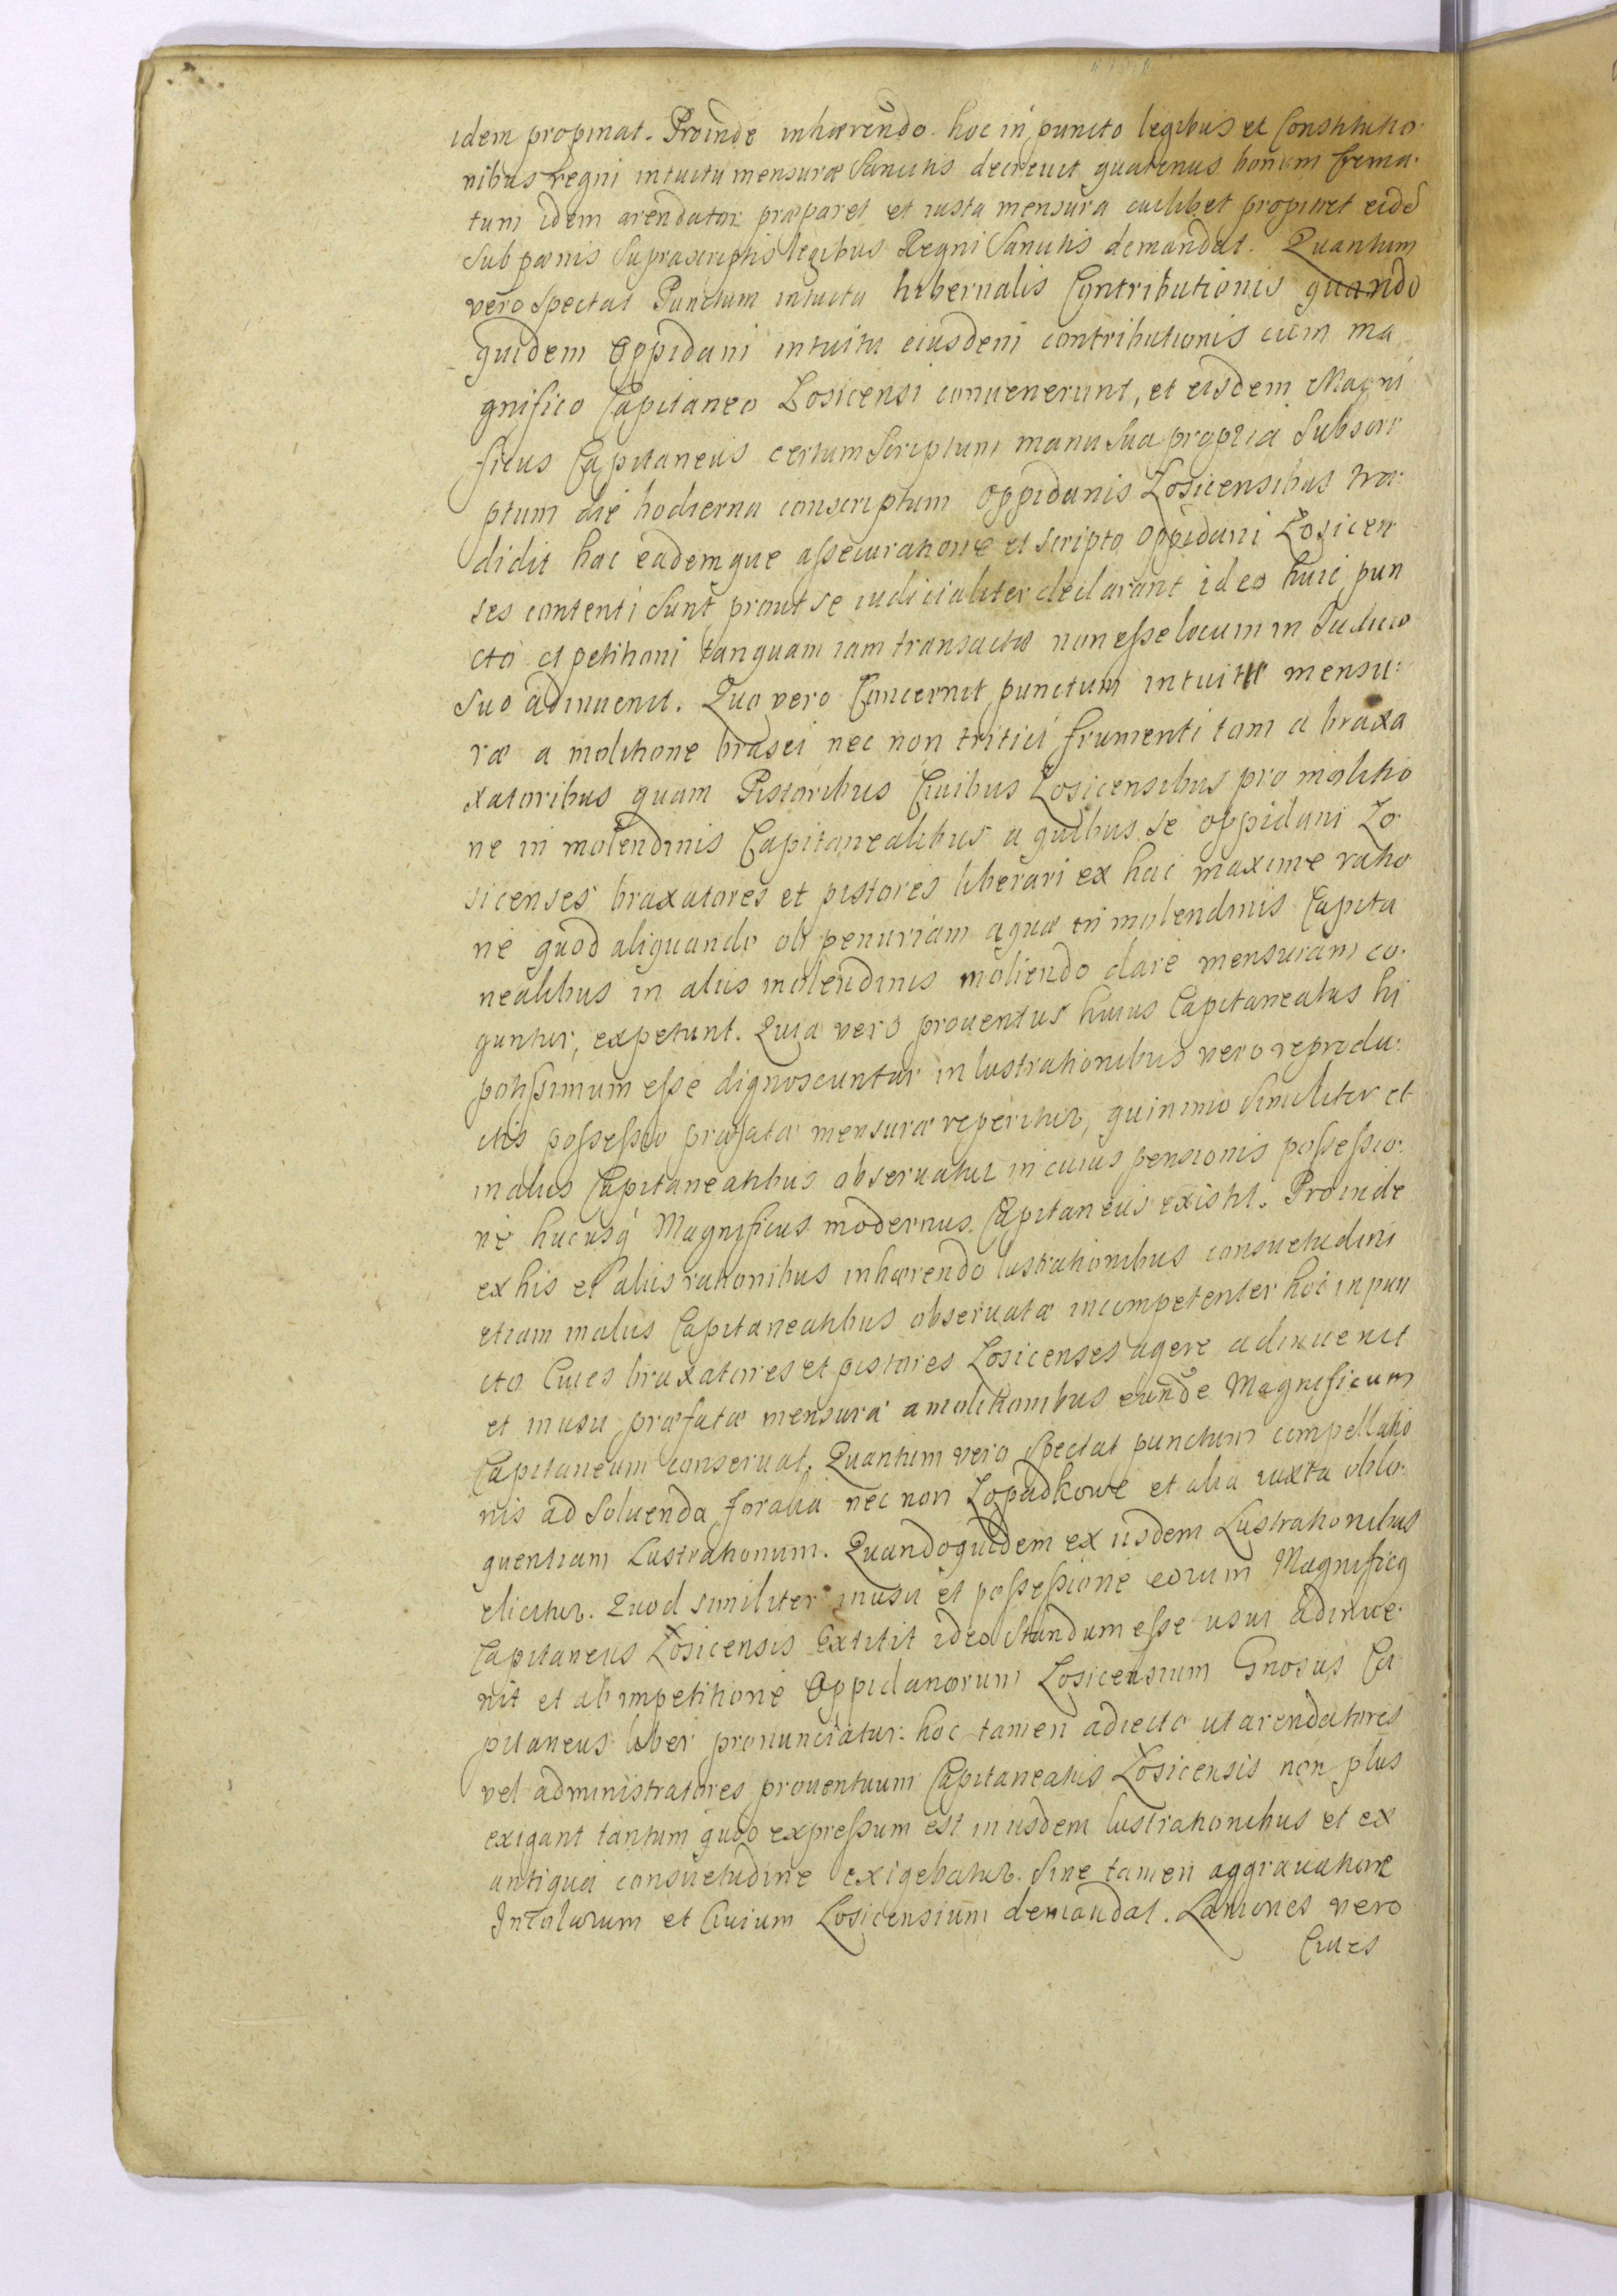 idem propinat. Proinde inhærendo hoc in puncto legibus et Constitutio
nibus regni intuitu mensuræ sancitis decrevit quatenus bonum crema
tum idem arendator præparet et iusta mensura cuilibet propinet eidē
sub pœnis suprascriptis legibus Regni sancitis demandat. Quantum
vero spectat Punctum intuitu hibernalis Contributionis quando
quidem Oppidani intuitu eiusdem contributionis cum ma
gnifico Capitaneo Losicensi convenerunt, et eisdem Magni
ficus Capitaneus certum scriptum manu sua propria subscri
ptum die hodierna conscriptum oppidanis Losicensibus tra
didit hac eademque assecuratione et scripto oppidani Losicen
ses contenti sunt prout se iudicialiter declarant ideo huic pun
cto et petitioni tanquam iam transactæ non esse locum in Iudicio
suo adinvenit. Quo vero Concernit punctum intuitu mensu:
ræ a molitione brasei nec non tritici frumenti tam a braxa
xatoribus quam Pistoribus Civibus Losicensibus pro molitio
ne in molendinis Capitanealibus a quibus se oppidani Lo
sicenses braxatores et pistores liberari ex hac maxime ratio
ne quod aliquando ob penuriam aquæ in molendinis Capita
nealibus in aliis molendinis moliendo dare mensuram co
guntur, expetunt. Quia vero proventus huius Capitaneatus hi
potissimum esse dignoscuntur in lustrationibus vero reprodu:
ctis possessio præfatæ mensuræ reperitur, quinimo similiter et
in aliis Capitaneatibus observatur in cuius pensionis possessio:
ne hucusq Magnificus modernus Capitaneus existit. Proinde
ex his et aliis rationibus inhærendo lustrationibus consuetudini
etiam in aliis Capitaneatibus observatæ incompetenter hoc in pun
cto Cives braxatores et pistores Losicenses agere adinvenit
et in usu præfatæ mensuræ a molitionibus eundē Magnificum
Capitaneum conservat. Quantum vero spectat punctum compellatio
nis ad solvenda foralia nec non Lopadkowe et alia iuxta oblo
quentiam Lustrationum. Quandoquidem ex iisdem Lustrationibus
elicitur. Quod similiter in usu et possessione eorum Magnificq
Capitaneus Losicensis extitit ideo standum esse usui adinve
nit et ab impetitione Oppidanorum Losicensium Gnosus Ca
pitaneus liber pronunciatur: hoc tamen adiecto ut arendatores
vel administratores proventuum Capitaneatus Losicensis non plus
exigant tantum quod expressum est in iisdem lustrationibus et ex
antiqua consuetudine exigebatur. sine tamen aggravatione
Incolarum et Civium Losicensium demandat. Laniones vero
Cives